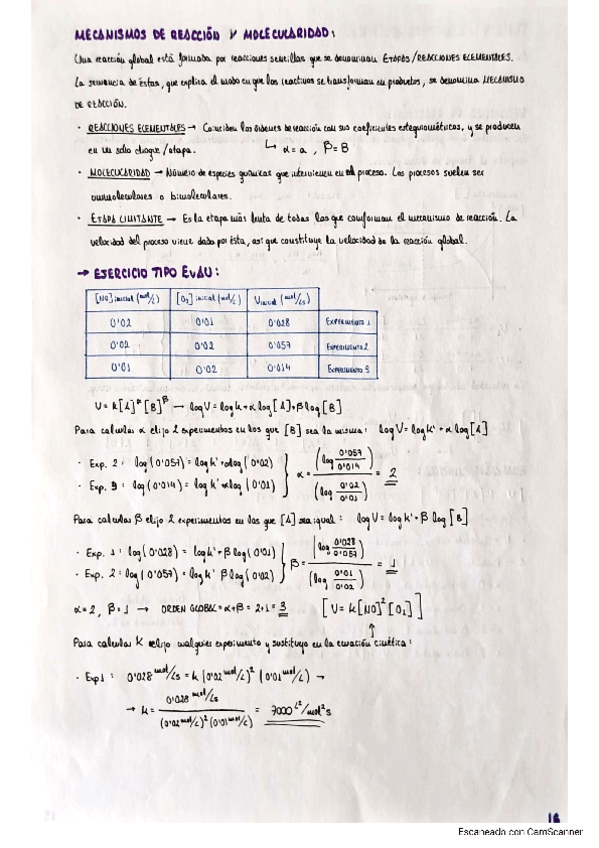 MECANISMOS DE REACCIÓN Y MOLECULARIDAD:
Una reacción global está formada por reacciones sencillas que se denominan ETAPAS/REACCIONES ELEMENTALES.
La secuencia de éstas, que explica el modo en que los reactivos se transforman en productos, se denomina MECANISMO
DE REACCIÓN.
· REACCIONES ELEMENTALES → Coinciden los órdenes de reacción con sus coeficientes estequiométricos, y se producen
en un solo choque/etapa. ↳ α = a , β = B
· MOLECULARIDAD → Número de especies químicas que intervienen en el proceso. Los procesos suelen ser
unimoleculares o bimoleculares.
· ETAPA LIMITANTE → Es la etapa más lenta de todas las que conforman el mecanismo de reacción. La
velocidad del proceso viene dada por ésta, así que constituye la velocidad de la reacción global.
→ EJERCICIO TIPO EvAU:
[NO] inicial (mol/L) [O₂] inicial (mol/L) V inicial (mol/Ls)
0'02 0'01 0'028 EXPERIMENTO 1
0'02 0'02 0'057 EXPERIMENTO 2
0'01 0'02 0'014 EXPERIMENTO 3
V = k[A]^α [B]^β → log V = log k + α log [A] + β log [B]
Para calcular α elijo 2 experimentos en los que [B] sea la misma: log V = log k' + α log [A]
· Exp. 2: log (0'057) = log k' + α log (0'02)
· Exp. 3: log (0'014) = log k' + α log (0'01) } α = (log 0'057/0'014) / (log 0'02/0'01) = 2
Para calcular β elijo 2 experimentos en los que [A] sea igual: log V = log k' + β log [B]
· Exp. 1: log (0'028) = log k' + β log (0'01)
· Exp. 2: log (0'057) = log k' β log (0'02) } β = (log 0'028/0'057) / (log 0'01/0'02) = 1
α = 2, β = 1 → ORDEN GLOBAL = α + β = 2 + 1 = 3 [V = k[NO]² [O₂]]
Para calcular K elijo cualquier experimento y sustituyo en la ecuación cinética:
· Exp 1: 0'028 mol/Ls = k (0'02 mol/L)² (0'01 mol/L) →
→ k = 0'028 mol/Ls / (0'02 mol/L)² (0'01 mol/L) = 7000 L²/mol² s
16
Escaneado con CamScanner